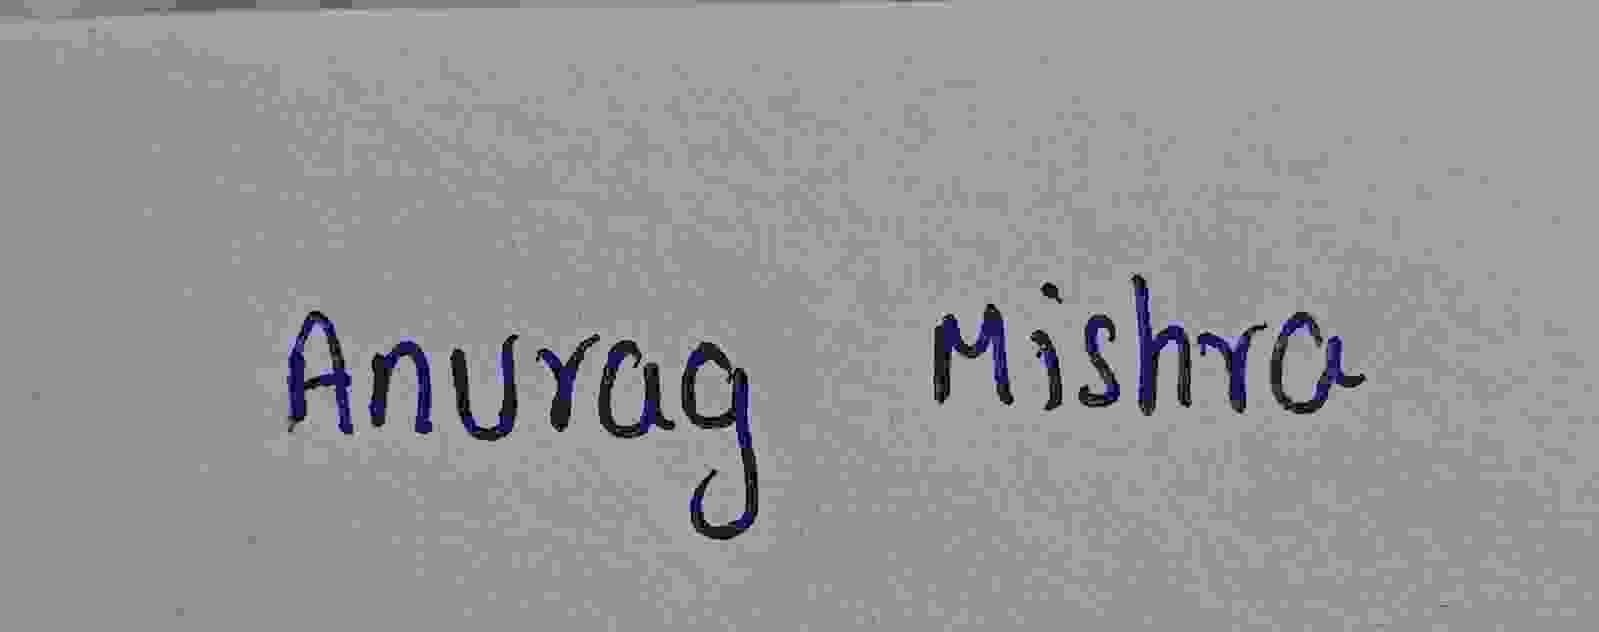 Anurag Mishra